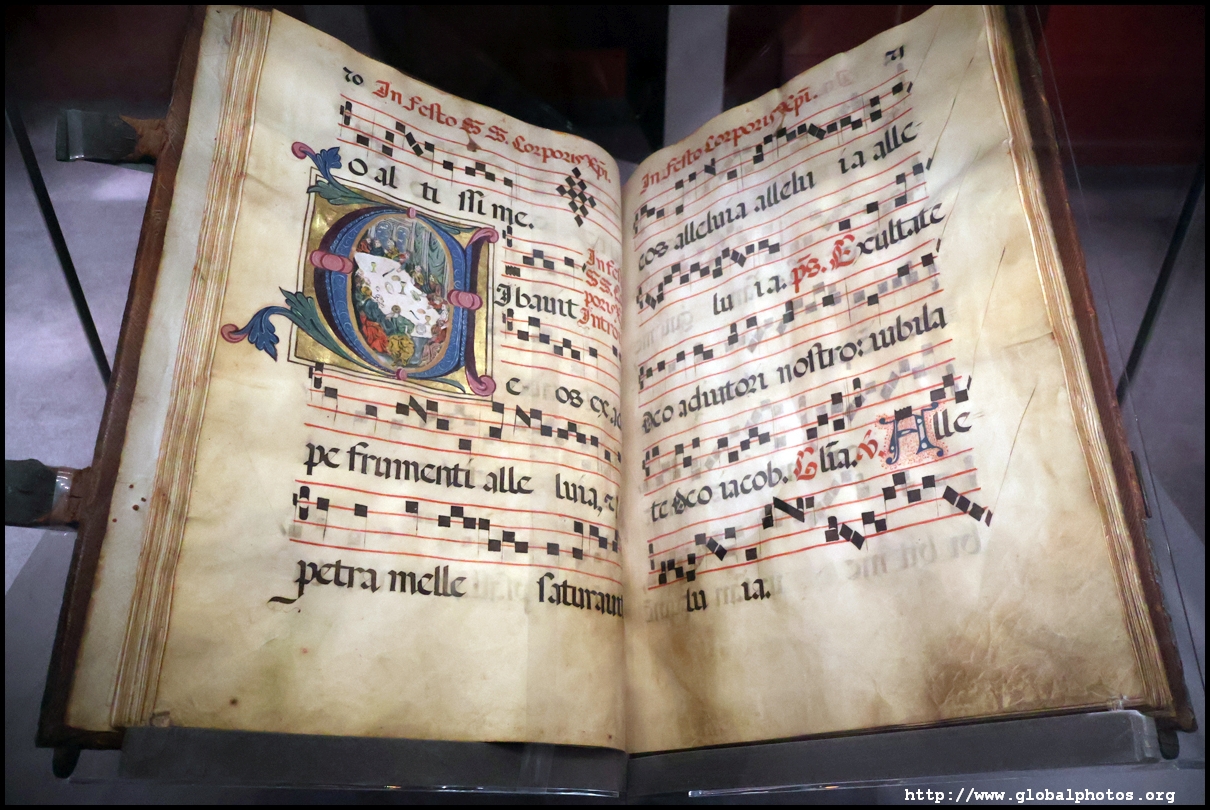 70
In Festo S S. Corporis Xpi.
O al ti ssi me.
In fes
S S. C
poris
Intro
C Ibavit
e os ex ad
pe frumenti alle luia, z
petra melle saturavit
71
In Festo Corporis Xpi.
eos alleluia allelu ia alle-
lu ia. ps. Exultate
deo adiutori nostro: iubila
te deo iacob. Glia. V. Alle
lu ia.
http://www.globalphotos.org